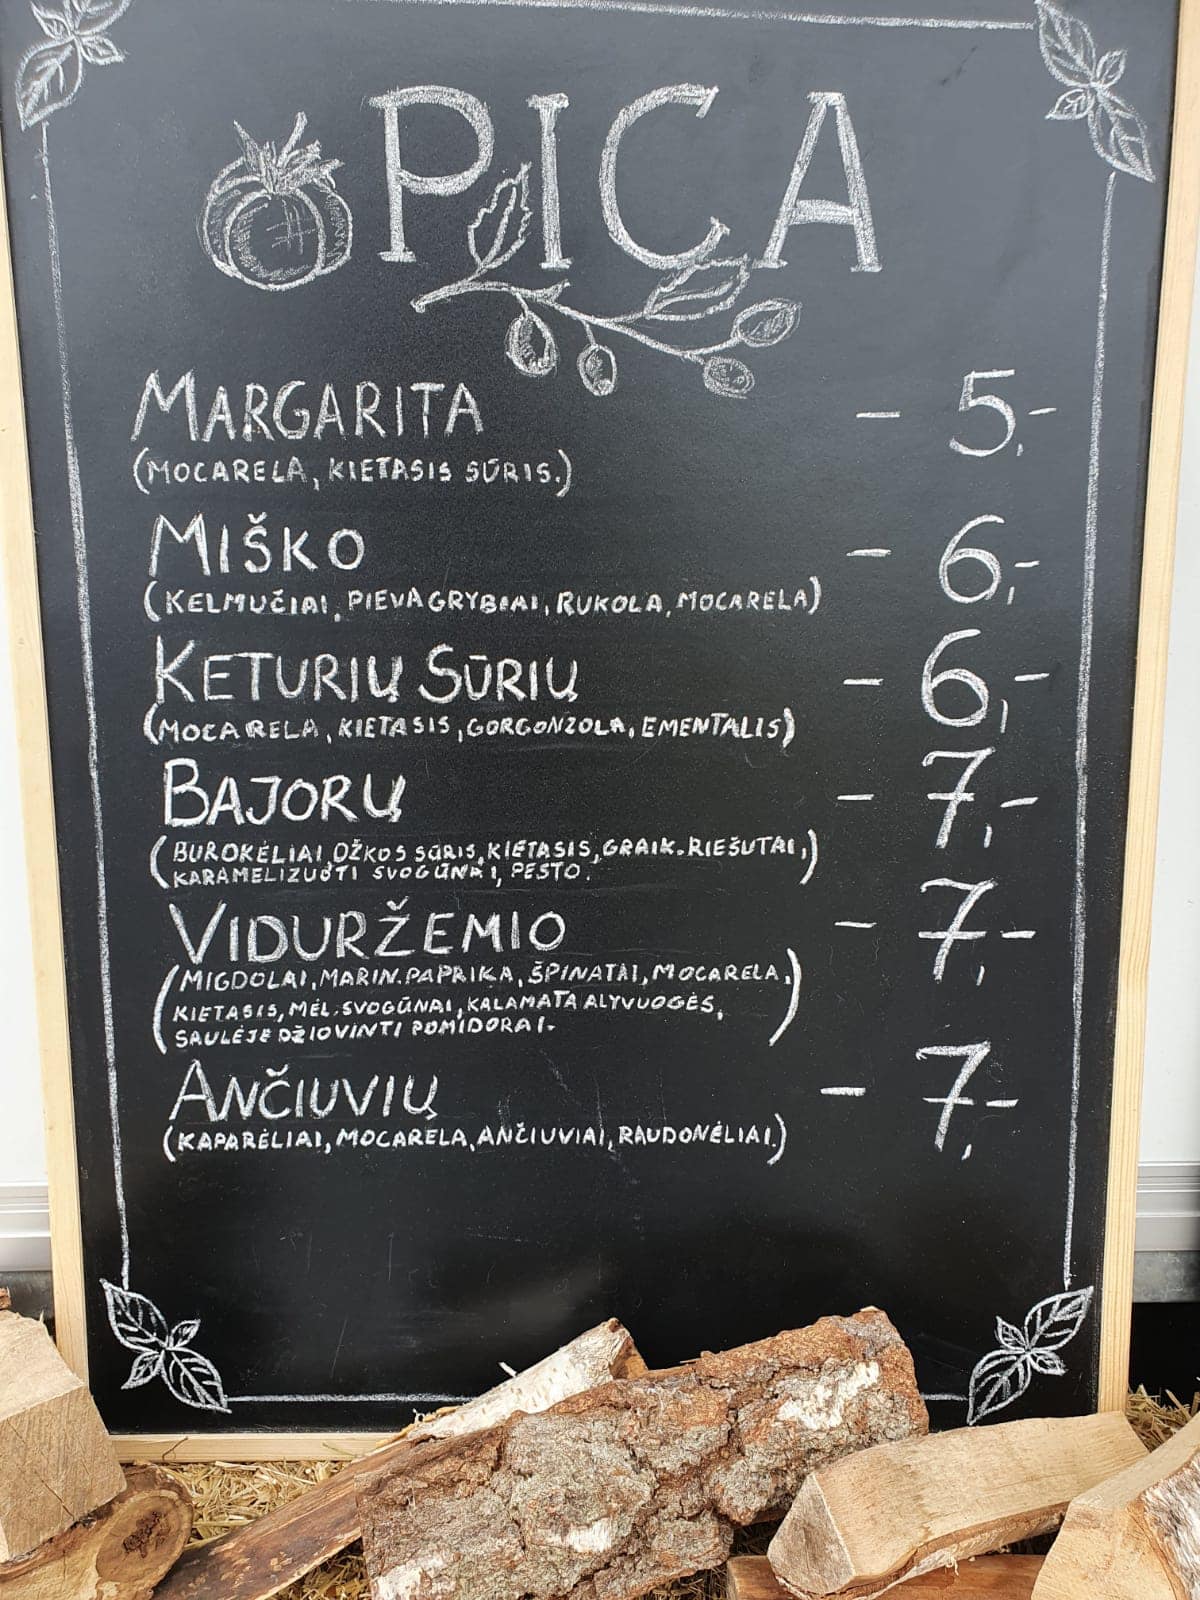 PICA
MARGARITA - 5,-
(MOCARELA, KIETASIS SŪRIS.)
MIŠKO - 6,-
(KELMUČIAI, PIEVAGRYBIAI, RUKOLA, MOCARELA)
KETURIŲ SŪRIŲ - 6,-
(MOCARELA, KIETASIS, GORGONZOLA, EMENTALIS)
BAJORŲ - 7,-
(BUROKĖLIAI, OŽKOS SŪRIS, KIETASIS, GRAIK. RIEŠUTAI,
KARAMELIZUOTI SVOGŪNAI, PESTO.)
VIDURŽEMIO - 7,-
(MIGDOLAI, MARIN. PAPRIKA, ŠPINATAI, MOCARELA,
KIETASIS, MĖL. SVOGŪNAI, KALAMATA ALYVUOGĖS,
SAULĖJE DŽIOVINTI POMIDORAI.)
ANČIUVIŲ - 7,-
(KAPARĖLIAI, MOCARELA, ANČIUVIAI, RAUDONĖLIAI.)